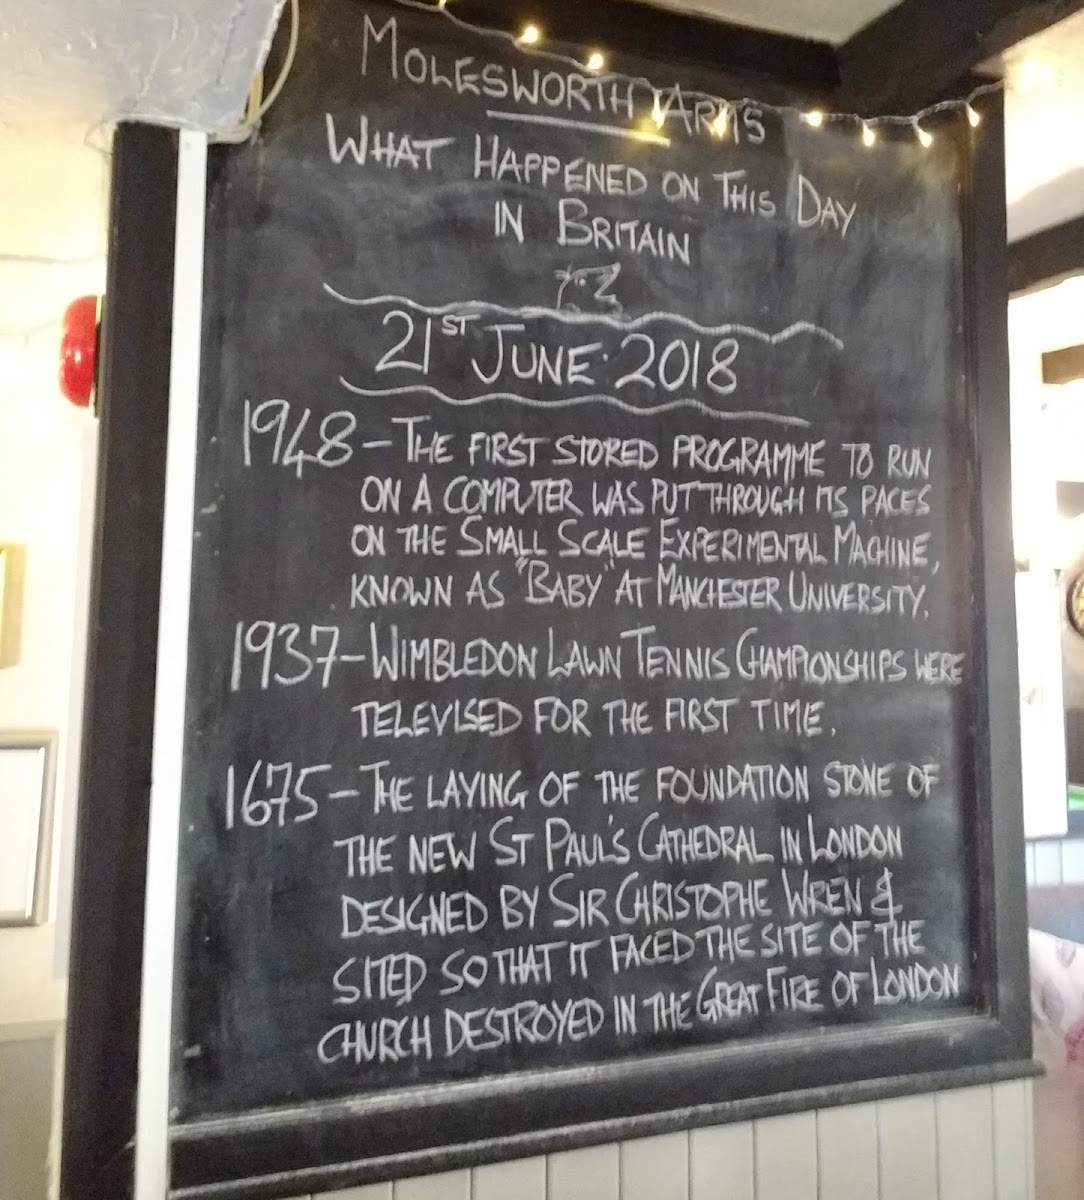 MOLESWORTH ARMS
WHAT HAPPENED ON THIS DAY
IN BRITAIN
21ST JUNE 2018
1948 - THE FIRST STORED PROGRAMME TO RUN
ON A COMPUTER WAS PUT THROUGH ITS PACES
ON THE SMALL SCALE EXPERIMENTAL MACHINE,
KNOWN AS "BABY" AT MANCHESTER UNIVERSITY.
1937 - WIMBLEDON LAWN TENNIS CHAMPIONSHIPS WERE
TELEVISED FOR THE FIRST TIME.
1675 - THE LAYING OF THE FOUNDATION STONE OF
THE NEW ST PAUL'S CATHEDRAL IN LONDON
DESIGNED BY SIR CHRISTOPHE WREN &
SITED SO THAT IT FACED THE SITE OF THE
CHURCH DESTROYED IN THE GREAT FIRE OF LONDON